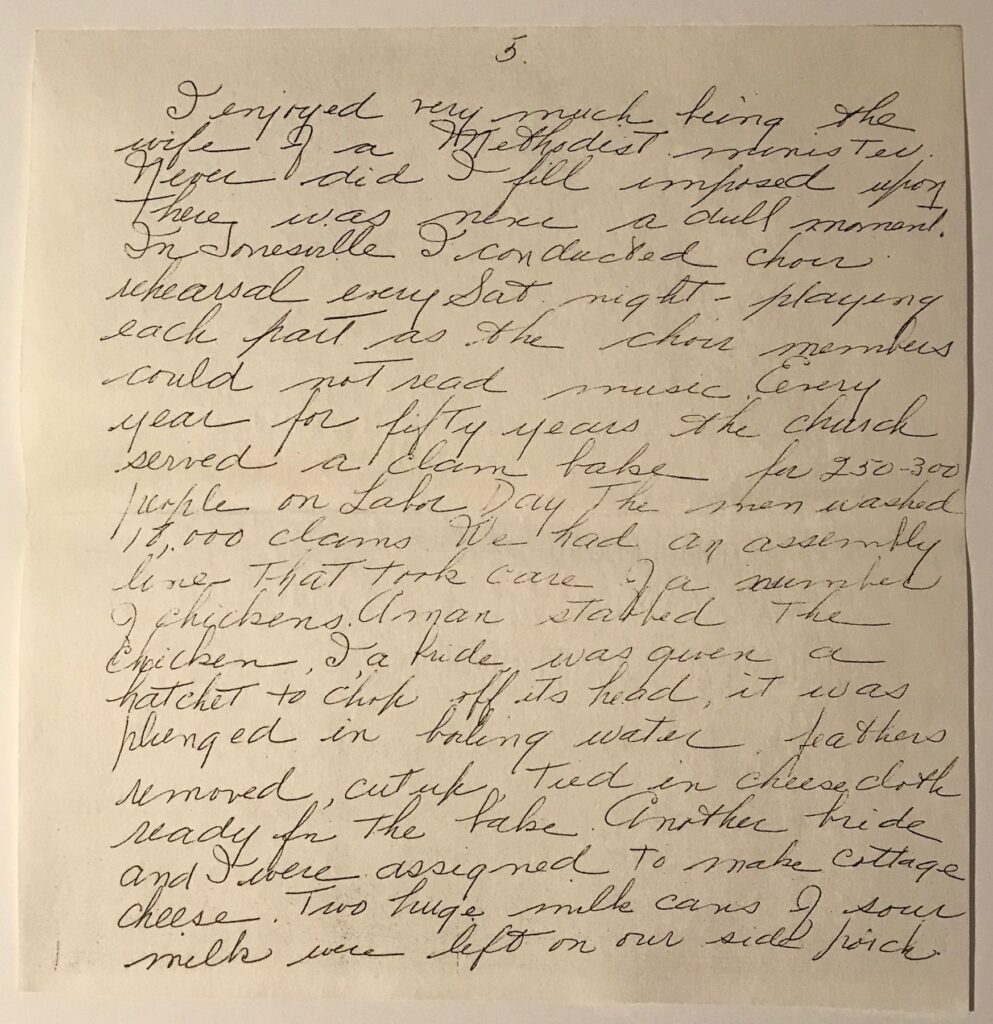 5.
I enjoyed very much being the
wife of a Methodist minister.
Never did I fill imposed upon
There was never a dull moment.
In Jonesville I conducted choir
rehearsal every Sat. night - playing
each part as the choir members
could not read music. Every
year for fifty years the church
served a clam bake for 250-300
people on Labor Day The men washed
10,000 clams We had an assembly
line that took care of a number
of chickens. A man stabbed the
chicken, I, a bride, was given a
hatchet to chop off its head, it was
plunged in boiling water, feathers
removed, cut up, tied in cheese cloth
ready for the bake. Another bride
and I were assigned to make cottage
cheese. Two huge milk cans of sour
milk were left on our side porch